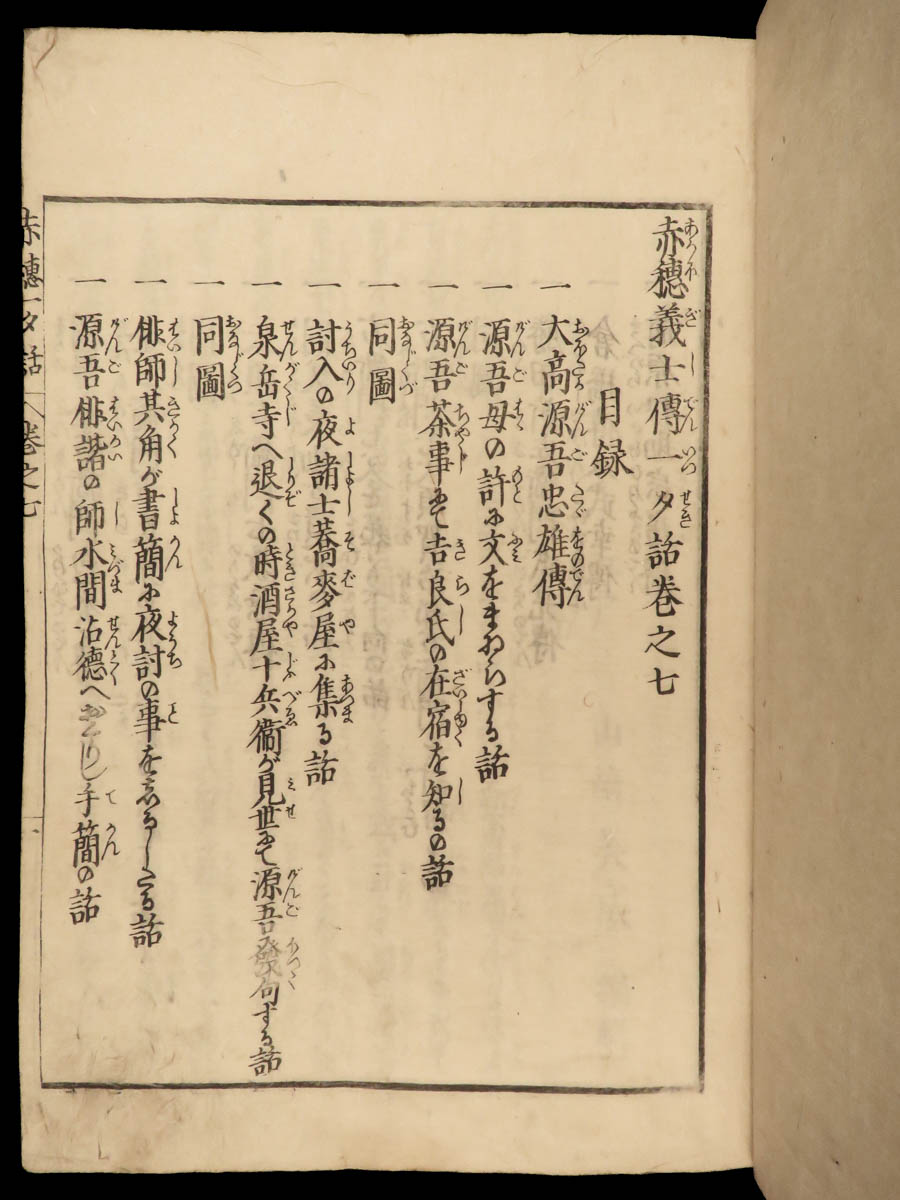 赤穗義士傳一夕話巻之七
目録
一 大高源吾忠雄傳
一 源吾母の許に文をまゐらする話
一 源吾茶事にて吉良氏の在宿を知るの話
一 同圖
一 討入の夜諸士蕎麥屋に集る話
一 泉岳寺へ退くの時酒屋十兵衞が見世にて源吾發句する話
一 同圖
一 俳師其角が書簡に夜討の事をしるしたる話
一 源吾俳諧の師水間沾德へおくりし手簡の話
赤穗一夕話 巻之七